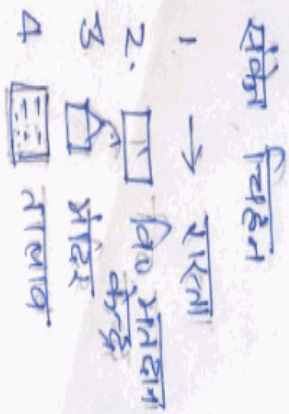 संकेत चिन्ह
1 → रास्ता
2. वि० मतदान केन्द्र
3 मंदिर
4 तालाब